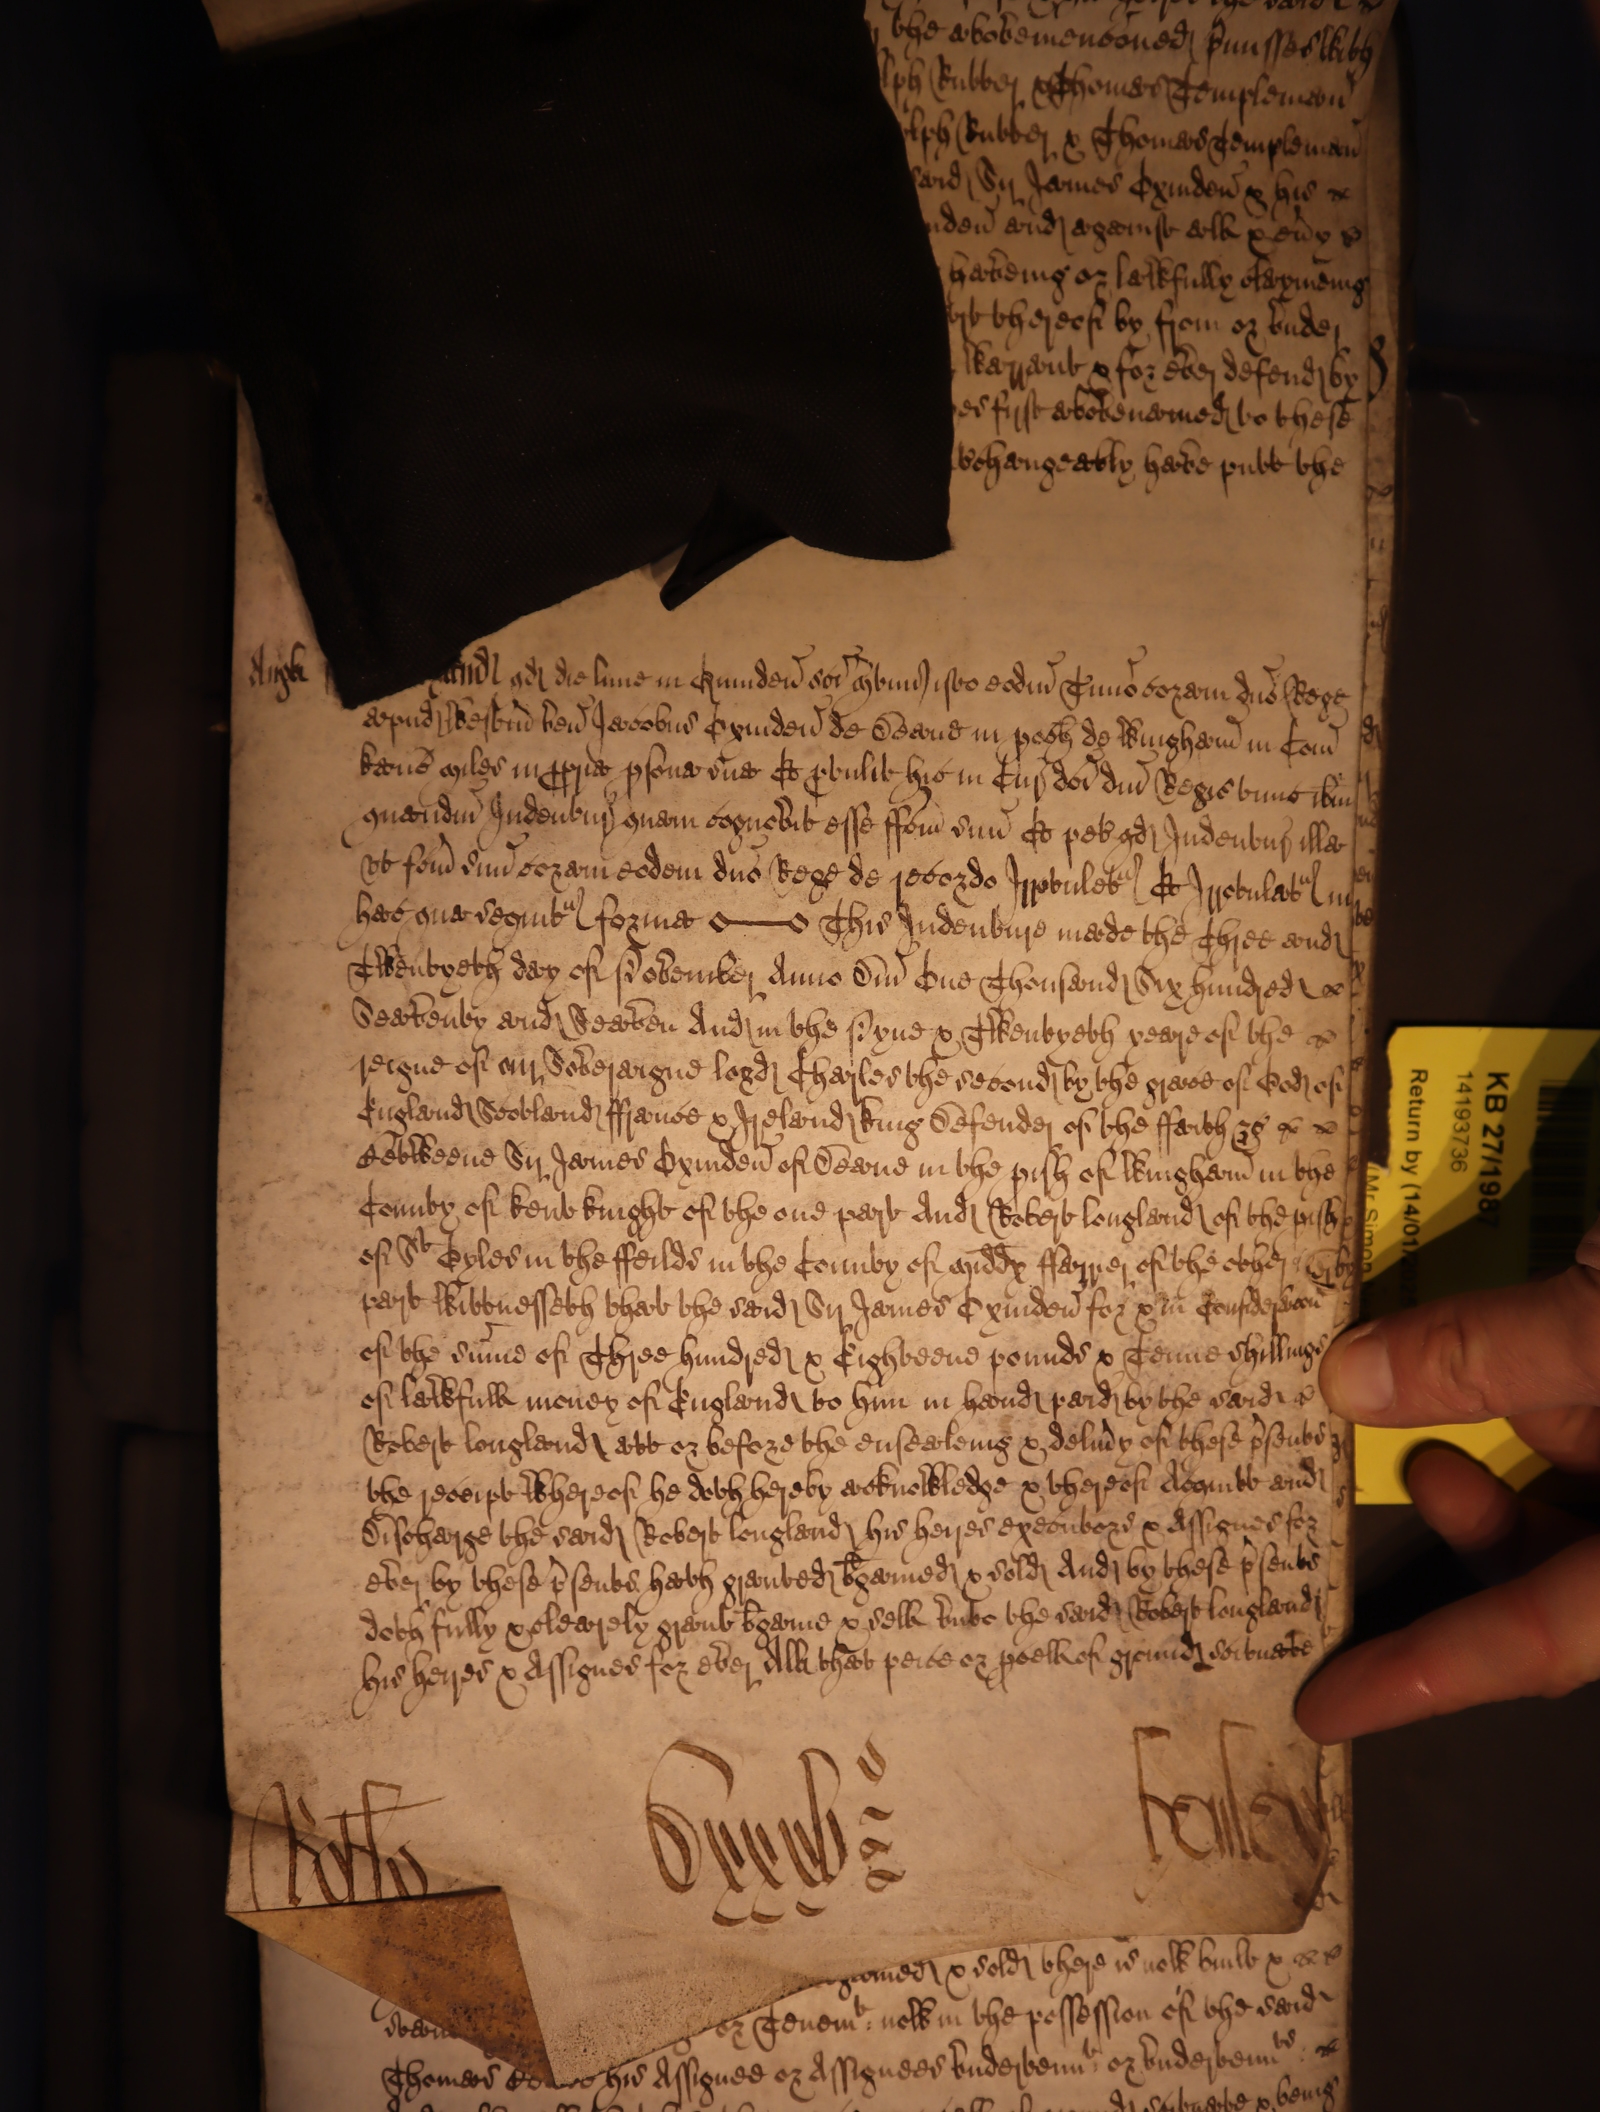 the abovemenconed p̄misses with
lph Rutter & Thomas Templeman
lph Rutter & Thomas Templeman
said Sr James Oxinden & his
nden and against all & evy
haveing or lawfully claymeing
thereof by from or under
warrant & for ever defend by
es first abovenamed to these
changeably have putt the
Angl
qd die lune in Quinden sci Martini isto eodm Tmio coram dno Rege
apud Westm ven Jacobus Oxinden de Deane in poch de Wingham in Com
Kanc Miles in ppria psona sua Et ptulit hic in Cur dci dni Regis tunc ibm
quandm Indentur quam cognovit esse ffcm suu Et pet qd Indentur illa
ut fcm suu coram eodem dno Rege de recordo Irrotuletr Et Irrotulatr in
hac qua sequitr forma This Indenture made the Three and
Twentyeth day of November Anno Dm One Thousand Six hundred &
Seaventy and Seaven And in the Nyne & Twentyeth yeare of the
reigne of our Soveraigne lord Charles the second by the grace of God of
England Scotland ffrance & Ireland King Defender of the ffaith &c
Betweene Sr James Oxinden of Deane in the pish of Wingham in the
County of Kent Knight of the one part And Robert Longland of the pish
of St Gyles in the ffeilds in the County of Middx ffarrier of the other
part Wittnesseth that the said Sr James Oxinden for & in Consideracon
of the sume of Three hundred & Eighteene pounds & Tenne shillings
of lawfull money of England to him in hand paid by the said
Robert Longland att or before the ensealeing & delivy of these p̄sents
the receipt whereof he doth hereby acknowledge & thereof Acquitt and
Discharge the said Robert Longland his heires executors & Assignes for
ever by these p̄sents hath granted bgained & sold And by these p̄sents
doth fully & clearely grant bgaine & sell unto the said Robert Longland
his heires & Assignes for ever All that peice or pcell of ground scituate
& sold there is now built &
or Tenemt now in the possession of the said
Thomas his Assignee or Assignees undertennt or undertennts
scituate & being
KB 27/1987
14193736
Return by (14/01/
Mr Simon